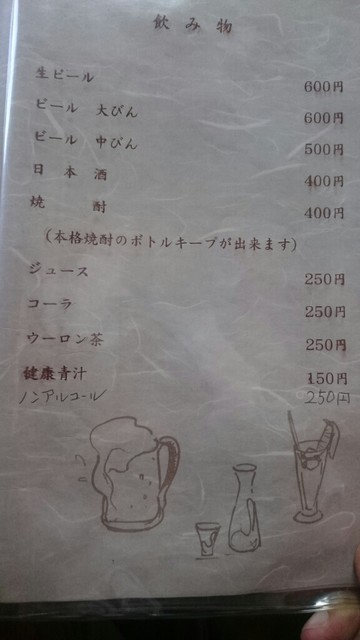 飲み物
生ビール 600円
ビール 大びん 600円
ビール 中びん 500円
日本酒 400円
焼酎 400円
(本格焼酎のボトルキープが出来ます)
ジュース 250円
コーラ 250円
ウーロン茶 250円
健康青汁 150円
ノンアルコール 250円